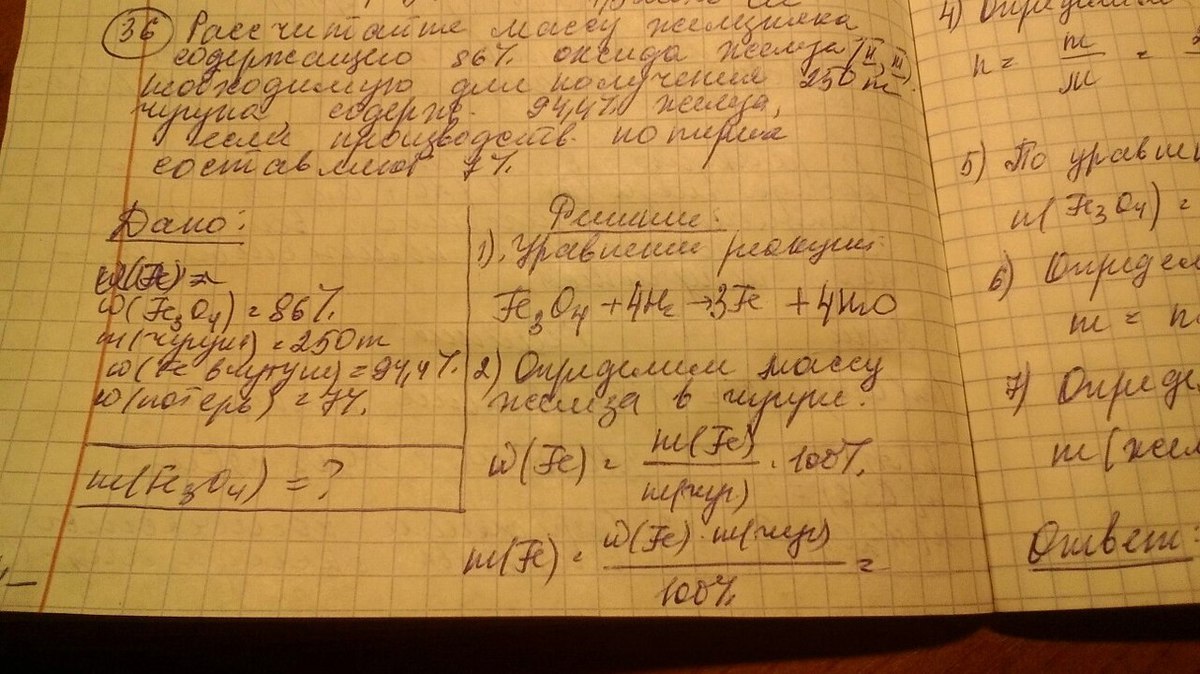 36 Рассчитайте массу железняка
содержащего 86% оксида железа (II, III)
необходимую для получения 250 т
чугуна содерж. 94,4% железа,
если производств. потери
составляют 7%.
Дано:
ω(Fe3O4) = 86%
m(чугун) = 250 т
ω(Fe в чугуне) = 94,4%
ω(потерь) = 7%.
m(Fe3O4) = ?
Решение:
1). Уравнение реакции:
Fe3O4 + 4H2 → 3Fe + 4H2O
2) Определим массу
железа в чугуне.
ω(Fe) = m(Fe) / m(чуг) · 100%
m(Fe) = ω(Fe) · m(чуг) / 100% =
4) Определим
n = m / M =
5) По уравнен
n(Fe3O4) =
6) Определ
m = n
7) Опреде
m(жел
Ответ: